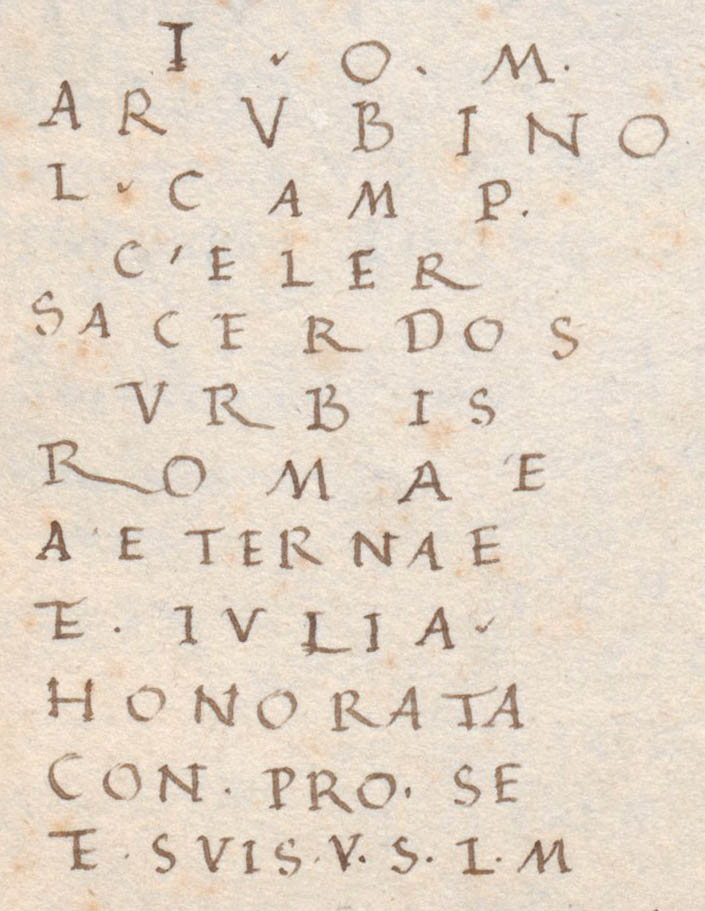 I · O · M ·
ARVBINO
L · CAMP.
C'ELER
SACERDOS
VRBIS
ROMAE
AETERNAE
E · IVLIA ·
HONORATA
CON · PRO · SE
E · SVIS · V · S · L · M